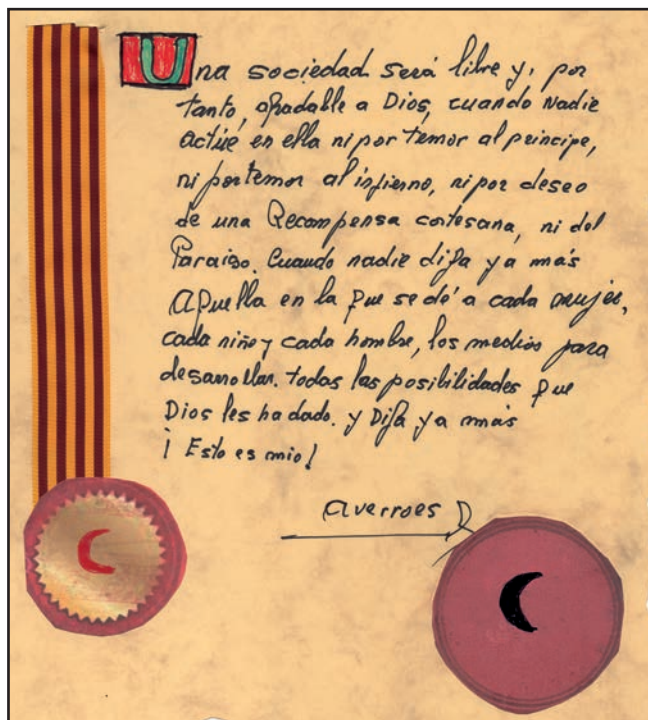 Una sociedad será libre y, por
tanto, agradable a Dios, cuando Nadie
actúe en ella ni por temor al príncipe,
ni por temor al infierno, ni por deseo
de una Recompensa cortesana, ni del
Paraiso. Cuando nadie diga ya más
Aquella en la que se dé a cada mujer,
cada niño y cada hombre, los medios para
desarrollar. todas las posibilidades que
Dios les ha dado. y Diga ya más
¡Esto es mio!
Averroes